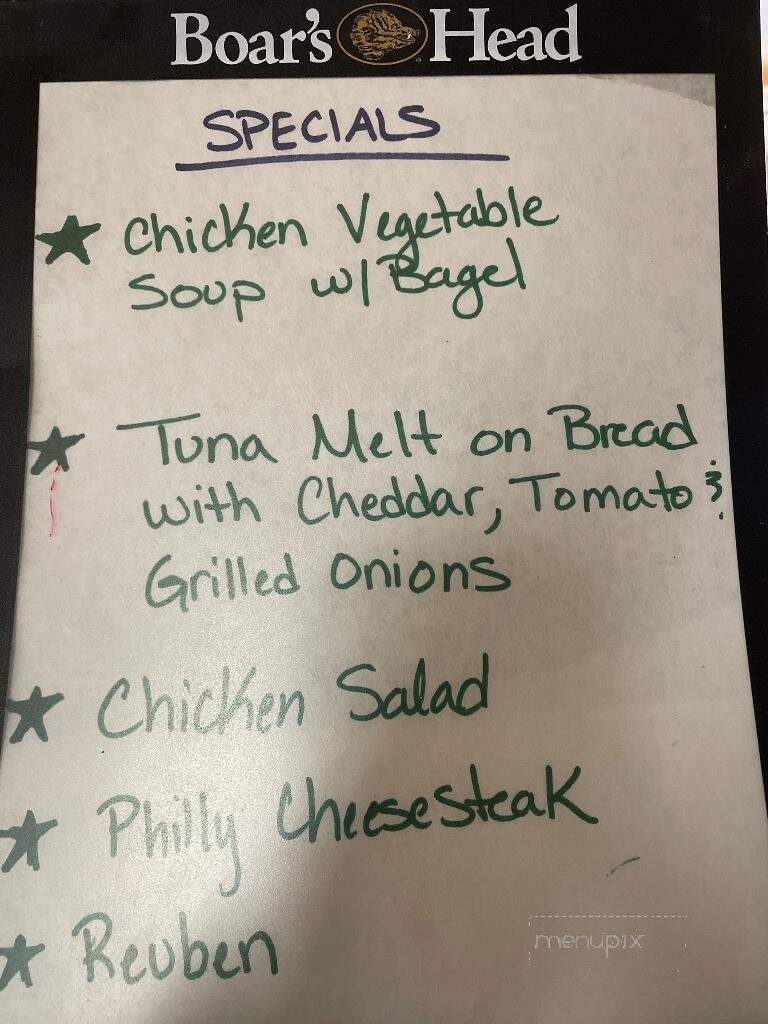 Boar's Head
SPECIALS
★ Chicken Vegetable
Soup w/ Bagel
★ Tuna Melt on Bread
with Cheddar, Tomato &
Grilled Onions
★ Chicken Salad
★ Philly Cheesesteak
★ Reuben
menupix